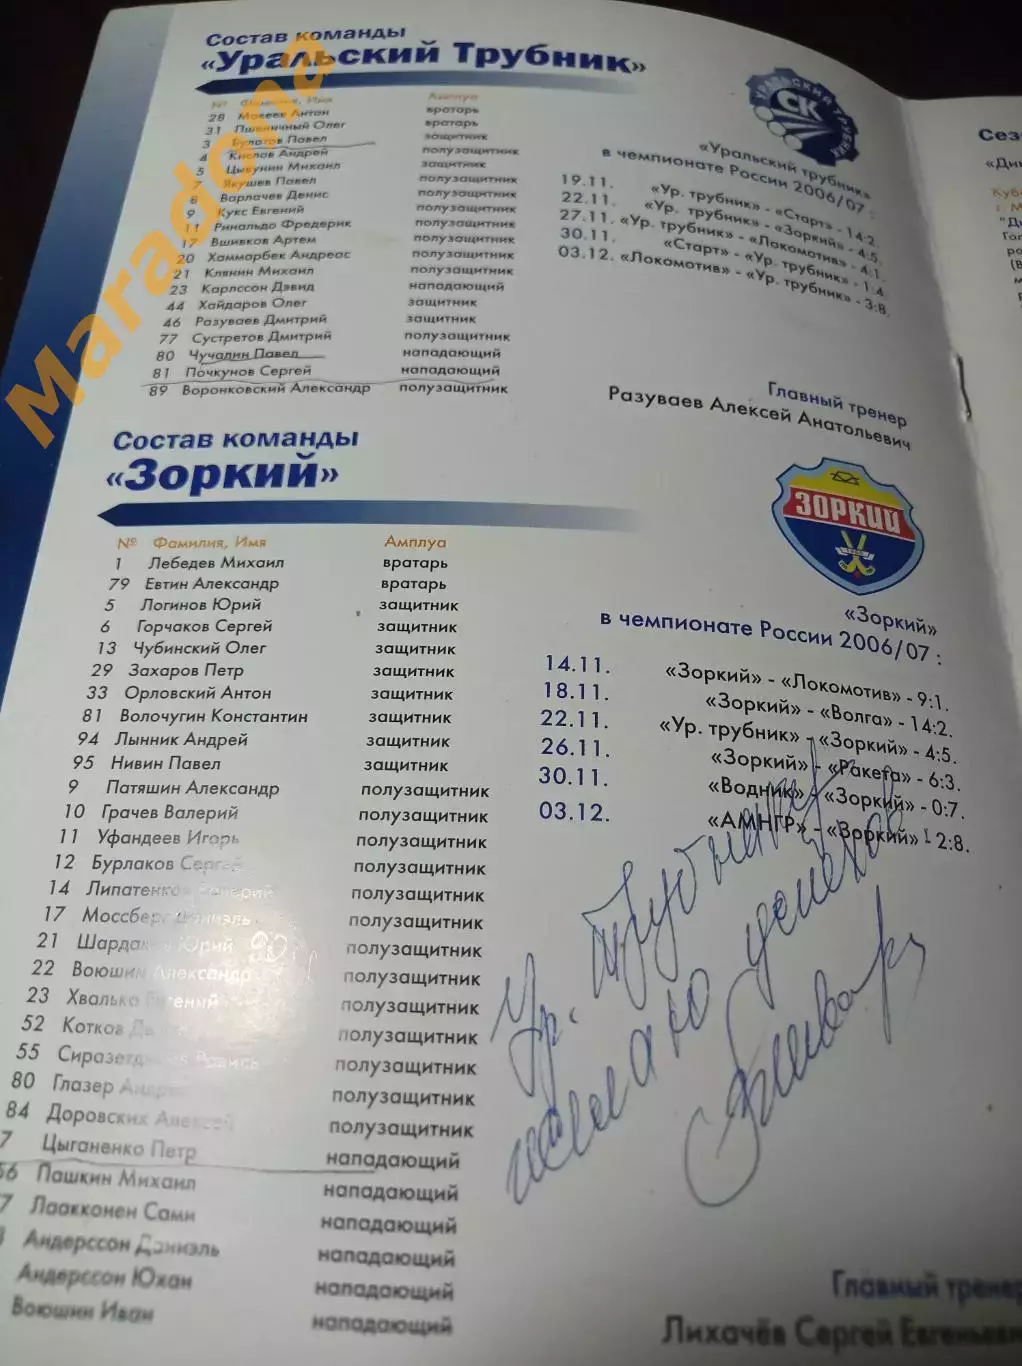 Состав команды
«Уральский Трубник»
№ Фамилия, Имя Амплуа
28 Мокеев Антон вратарь
31 Пшеничный Олег вратарь
3 Булатов Павел защитник
4 Кислов Андрей полузащитник
5 Цывунин Михаил защитник
7 Якушев Павел полузащитник
8 Варлачев Денис полузащитник
9 Кукс Евгений полузащитник
11 Ринальдо Фредерик полузащитник
17 Вшивков Артем полузащитник
20 Хаммарбек Андреас полузащитник
21 Клянин Михаил полузащитник
23 Карлссон Дэвид нападающий
44 Хайдаров Олег защитник
46 Разуваев Дмитрий защитник
77 Сустретов Дмитрий полузащитник
80 Чучалин Павел нападающий
81 Почкунов Сергей нападающий
89 Воронковский Александр полузащитник
УРАЛЬСКИЙ ТРУБНИК
СК
«Уральский трубник»
в чемпионате России 2006/07 :
19.11. «Ур. трубник» - «Старт» - 14:2.
22.11. «Ур. трубник» - «Зоркий» - 4:5.
27.11. «Ур. трубник» - «Локомотив» - 4:1.
30.11. «Старт» - «Ур. трубник» - 1:4.
03.12. «Локомотив» - «Ур. трубник» - 3:8.
Главный тренер
Разуваев Алексей Анатольевич
Состав команды
«Зоркий»
№ Фамилия, Имя Амплуа
1 Лебедев Михаил вратарь
79 Евтин Александр вратарь
5 Логинов Юрий защитник
6 Горчаков Сергей защитник
13 Чубинский Олег защитник
29 Захаров Петр защитник
33 Орловский Антон защитник
81 Волочугин Константин защитник
94 Лынник Андрей защитник
95 Нивин Павел защитник
9 Патяшин Александр полузащитник
10 Грачев Валерий полузащитник
11 Уфандеев Игорь полузащитник
12 Бурлаков Сергей полузащитник
14 Липатенков Валерий полузащитник
17 Моссберг Даниэль полузащитник
21 Шардаков Юрий полузащитник
22 Воюшин Александр полузащитник
23 Хвалько Евгений полузащитник
52 Котков полузащитник
55 Сиразетдинов Раис полузащитник
80 Глазер Андрей полузащитник
84 Доровских Алексей полузащитник
7 Цыганенко Петр нападающий
66 Пашкин Михаил нападающий
7 Лаакконен Сами нападающий
Андерссон Даниэль нападающий
Андерссон Юхан нападающий
Воюшин Иван нападающий
ЗОРКИЙ
«Зоркий»
в чемпионате России 2006/07 :
14.11. «Зоркий» - «Локомотив» - 9:1.
18.11. «Зоркий» - «Волга» - 14:2.
22.11. «Ур. трубник» - «Зоркий» - 4:5.
26.11. «Зоркий» - «Ракета» - 6:3.
30.11. «Водник» - «Зоркий» - 0:7.
03.12. «АМНГР» - «Зоркий» - 2:8.
Ур. Трубнику
желаю успехов
Главный тренер
Лихачёв Сергей Евгеньеви
Сез
«Дин
Кубо
Maradona